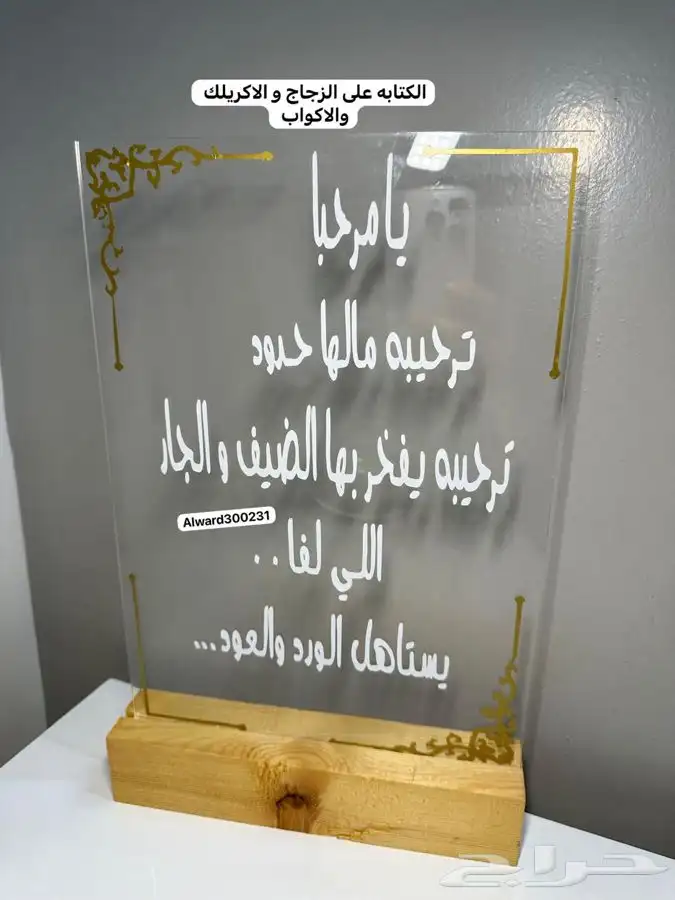 الكتابه على الزجاج و الاكريلك
والاكواب
يا مرحبا
ترحيبه مالها حدود
ترحيبه يفخر بها الضيف و الجار
Alward300231
اللي لفا . .
يستاهل الورد والعود...
حراج